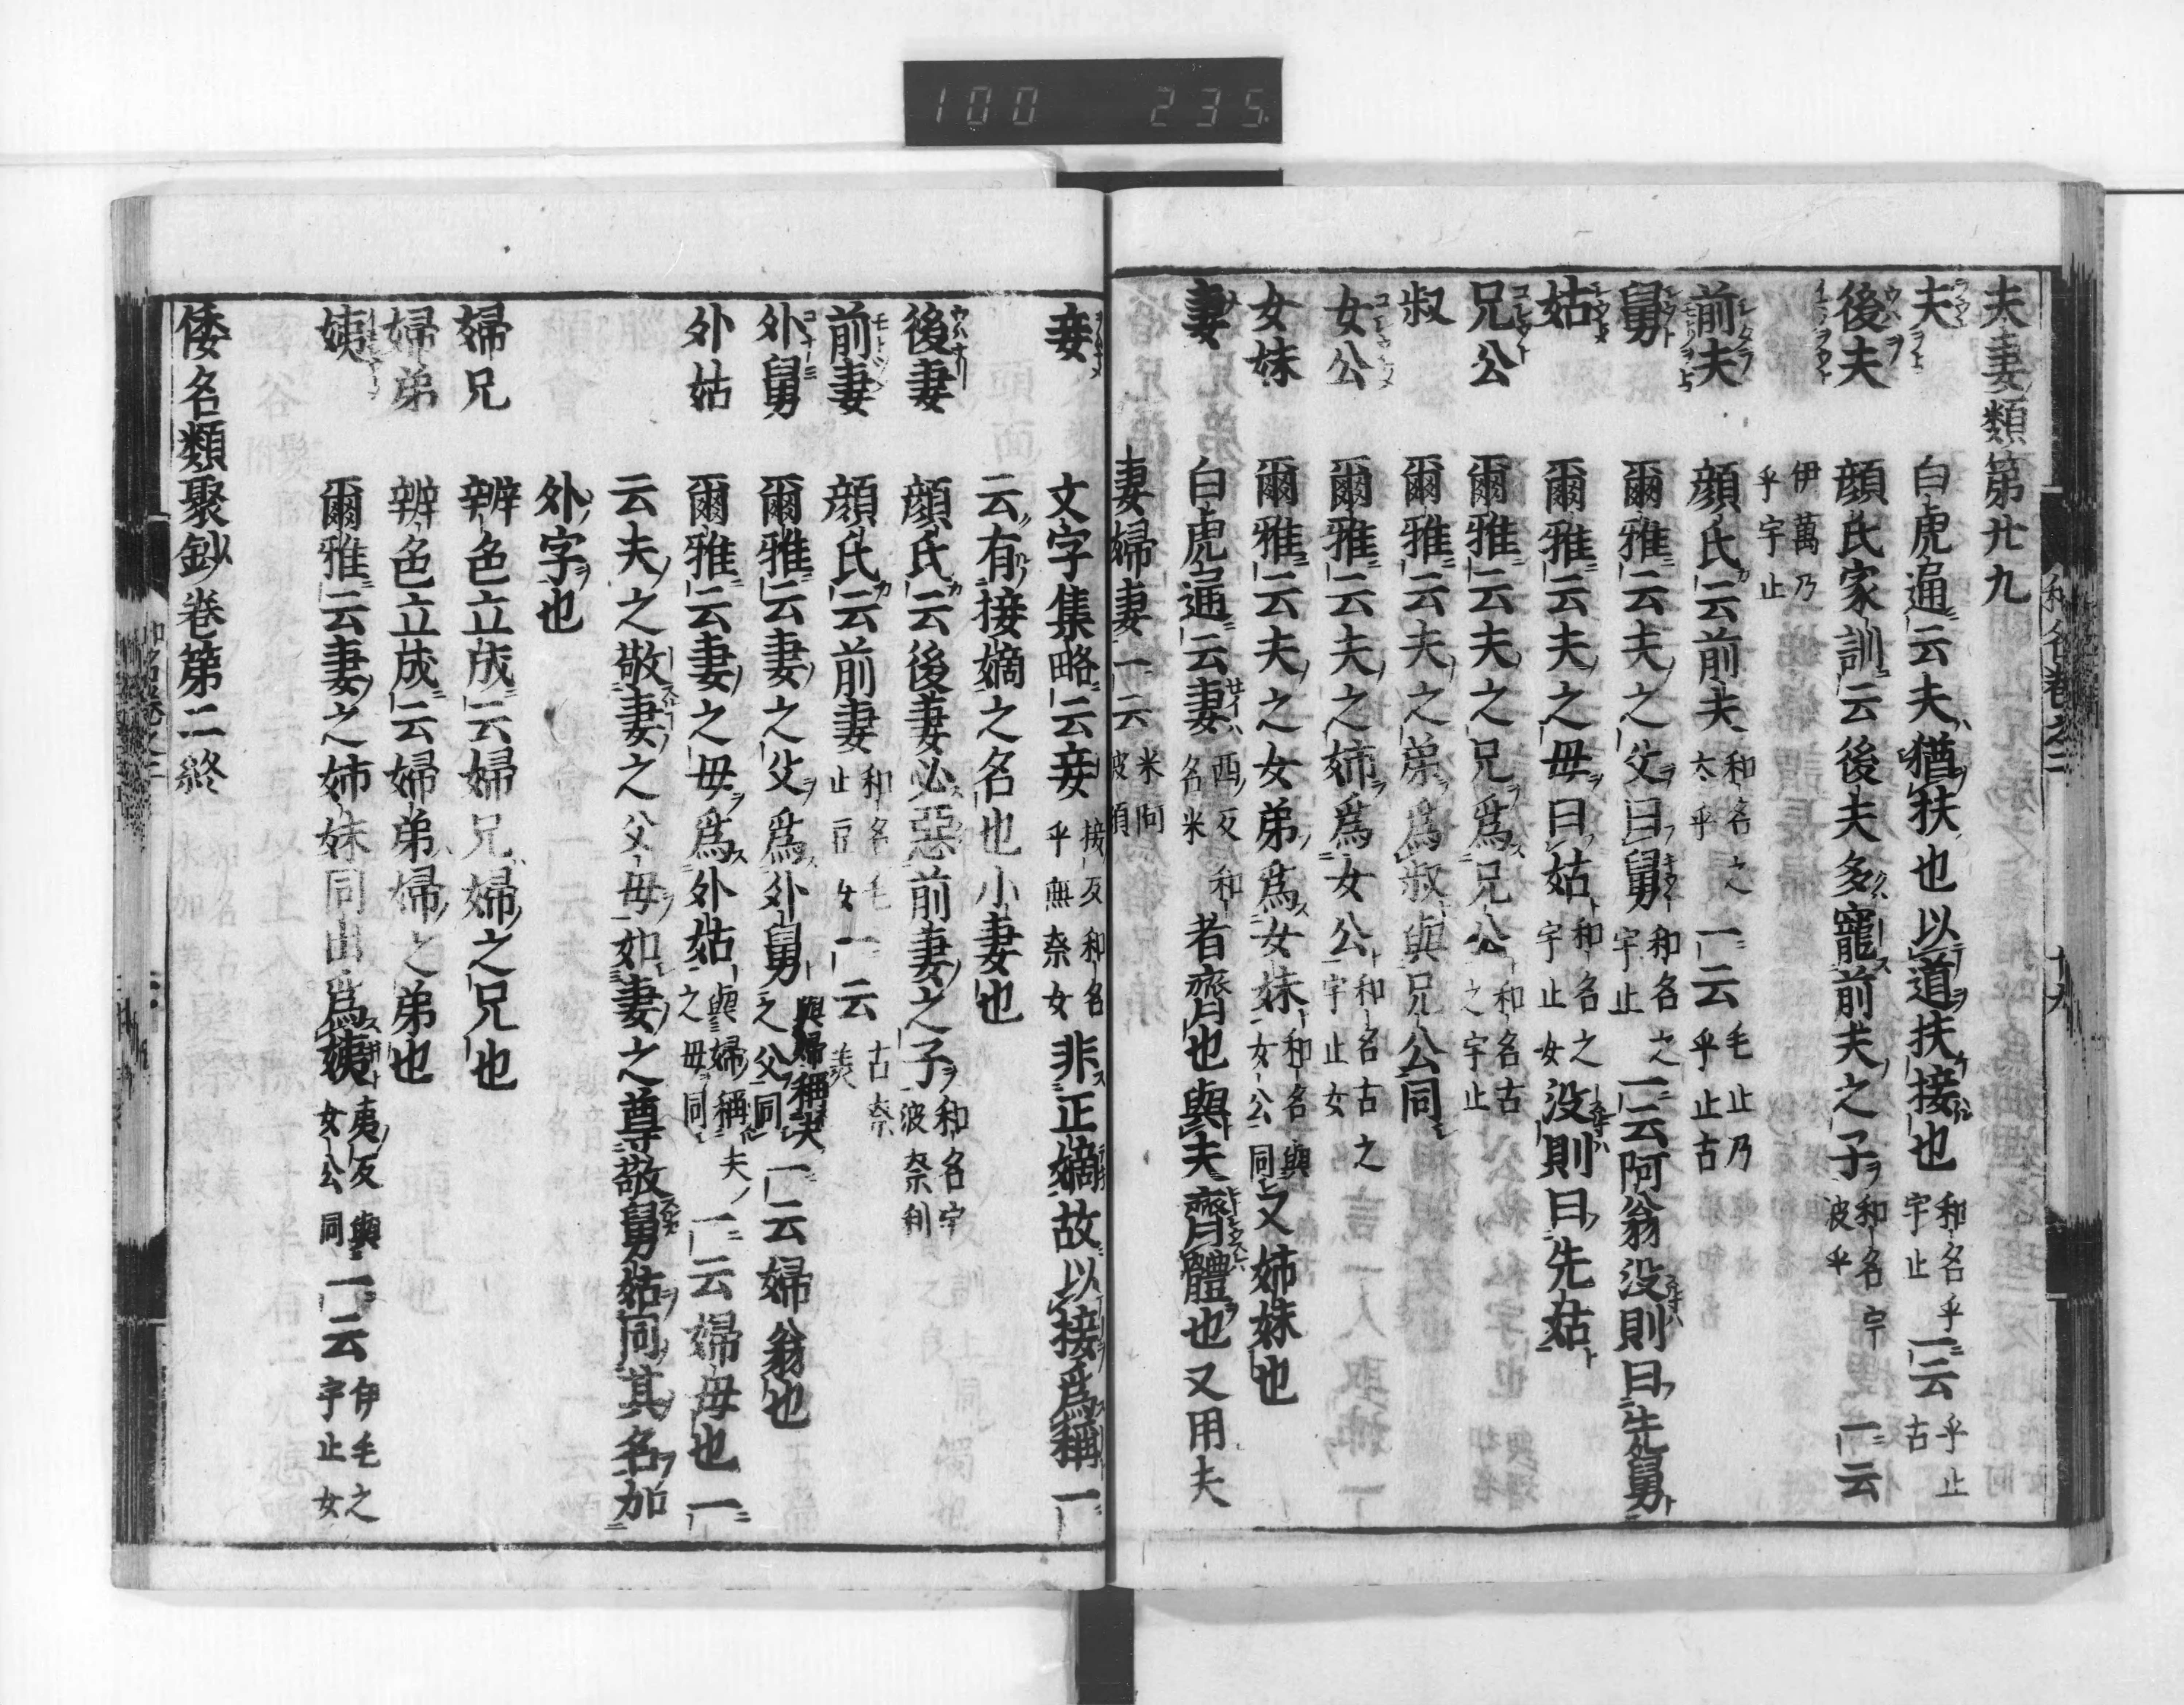 100 235.
夫妻類第廿九
夫 白虎通云夫猶扶也以道扶接也 和名乎宇止 一云乎止古
後夫 顔氏家訓云後夫多寵前夫之子 和名宇波乎 一云
伊萬乃乎宇止
前夫 顔氏云前夫 和名之太乎 一云毛止乃乎止古
舅 爾雅云夫之父曰舅 和名之宇止 一云阿翁没則曰先舅
姑 爾雅云夫之母曰姑 和名之宇止女 没則曰先姑
兄公 爾雅云夫之兄爲兄公 和名古之宇止
叔 爾雅云夫之弟爲叔與兄公同
女公 爾雅云夫之姉爲女公 和名古之宇止女
女妹 爾雅云夫之女弟爲女妹 和名與女公同 又姉妹也
妻 白虎通云妻 西反和名米 者齊也與夫齊體也又用夫
妻婦妻一云米
和名巻之二 十九
妾 文字集略云妾 接反和名乎無奈女 非正嫡故以接爲稱一
云有接嫡之名也小妻也
後妻 顔氏云後妻必惡前妻之子 和名宇波奈利
前妻 顔氏云前妻 和名毛止豆女 一云古奈美
外舅 爾雅云妻之父爲外舅 與婦稱夫之父同 一云婦翁也
外姑 爾雅云妻之母爲外姑 與婦稱夫之母同 一云婦母也一
云夫之敬妻之父母如妻之尊敬舅姑同其名加
外字也
婦兄 辨色立成云婦兄婦之兄也
婦弟 辨色立成云婦弟婦之弟也
姨 爾雅云妻之姉妹同出爲姨 夷反與女公同 一云伊毛之宇止女
倭名類聚鈔巻第二終